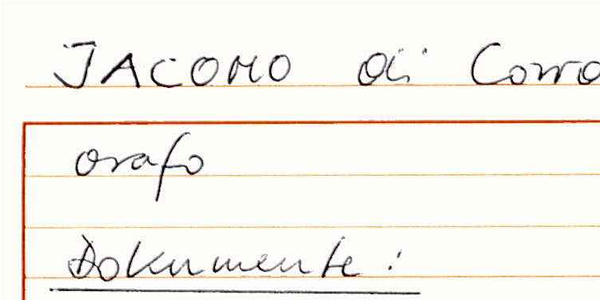 JACOMO di Corra
orafo
Dokumente: